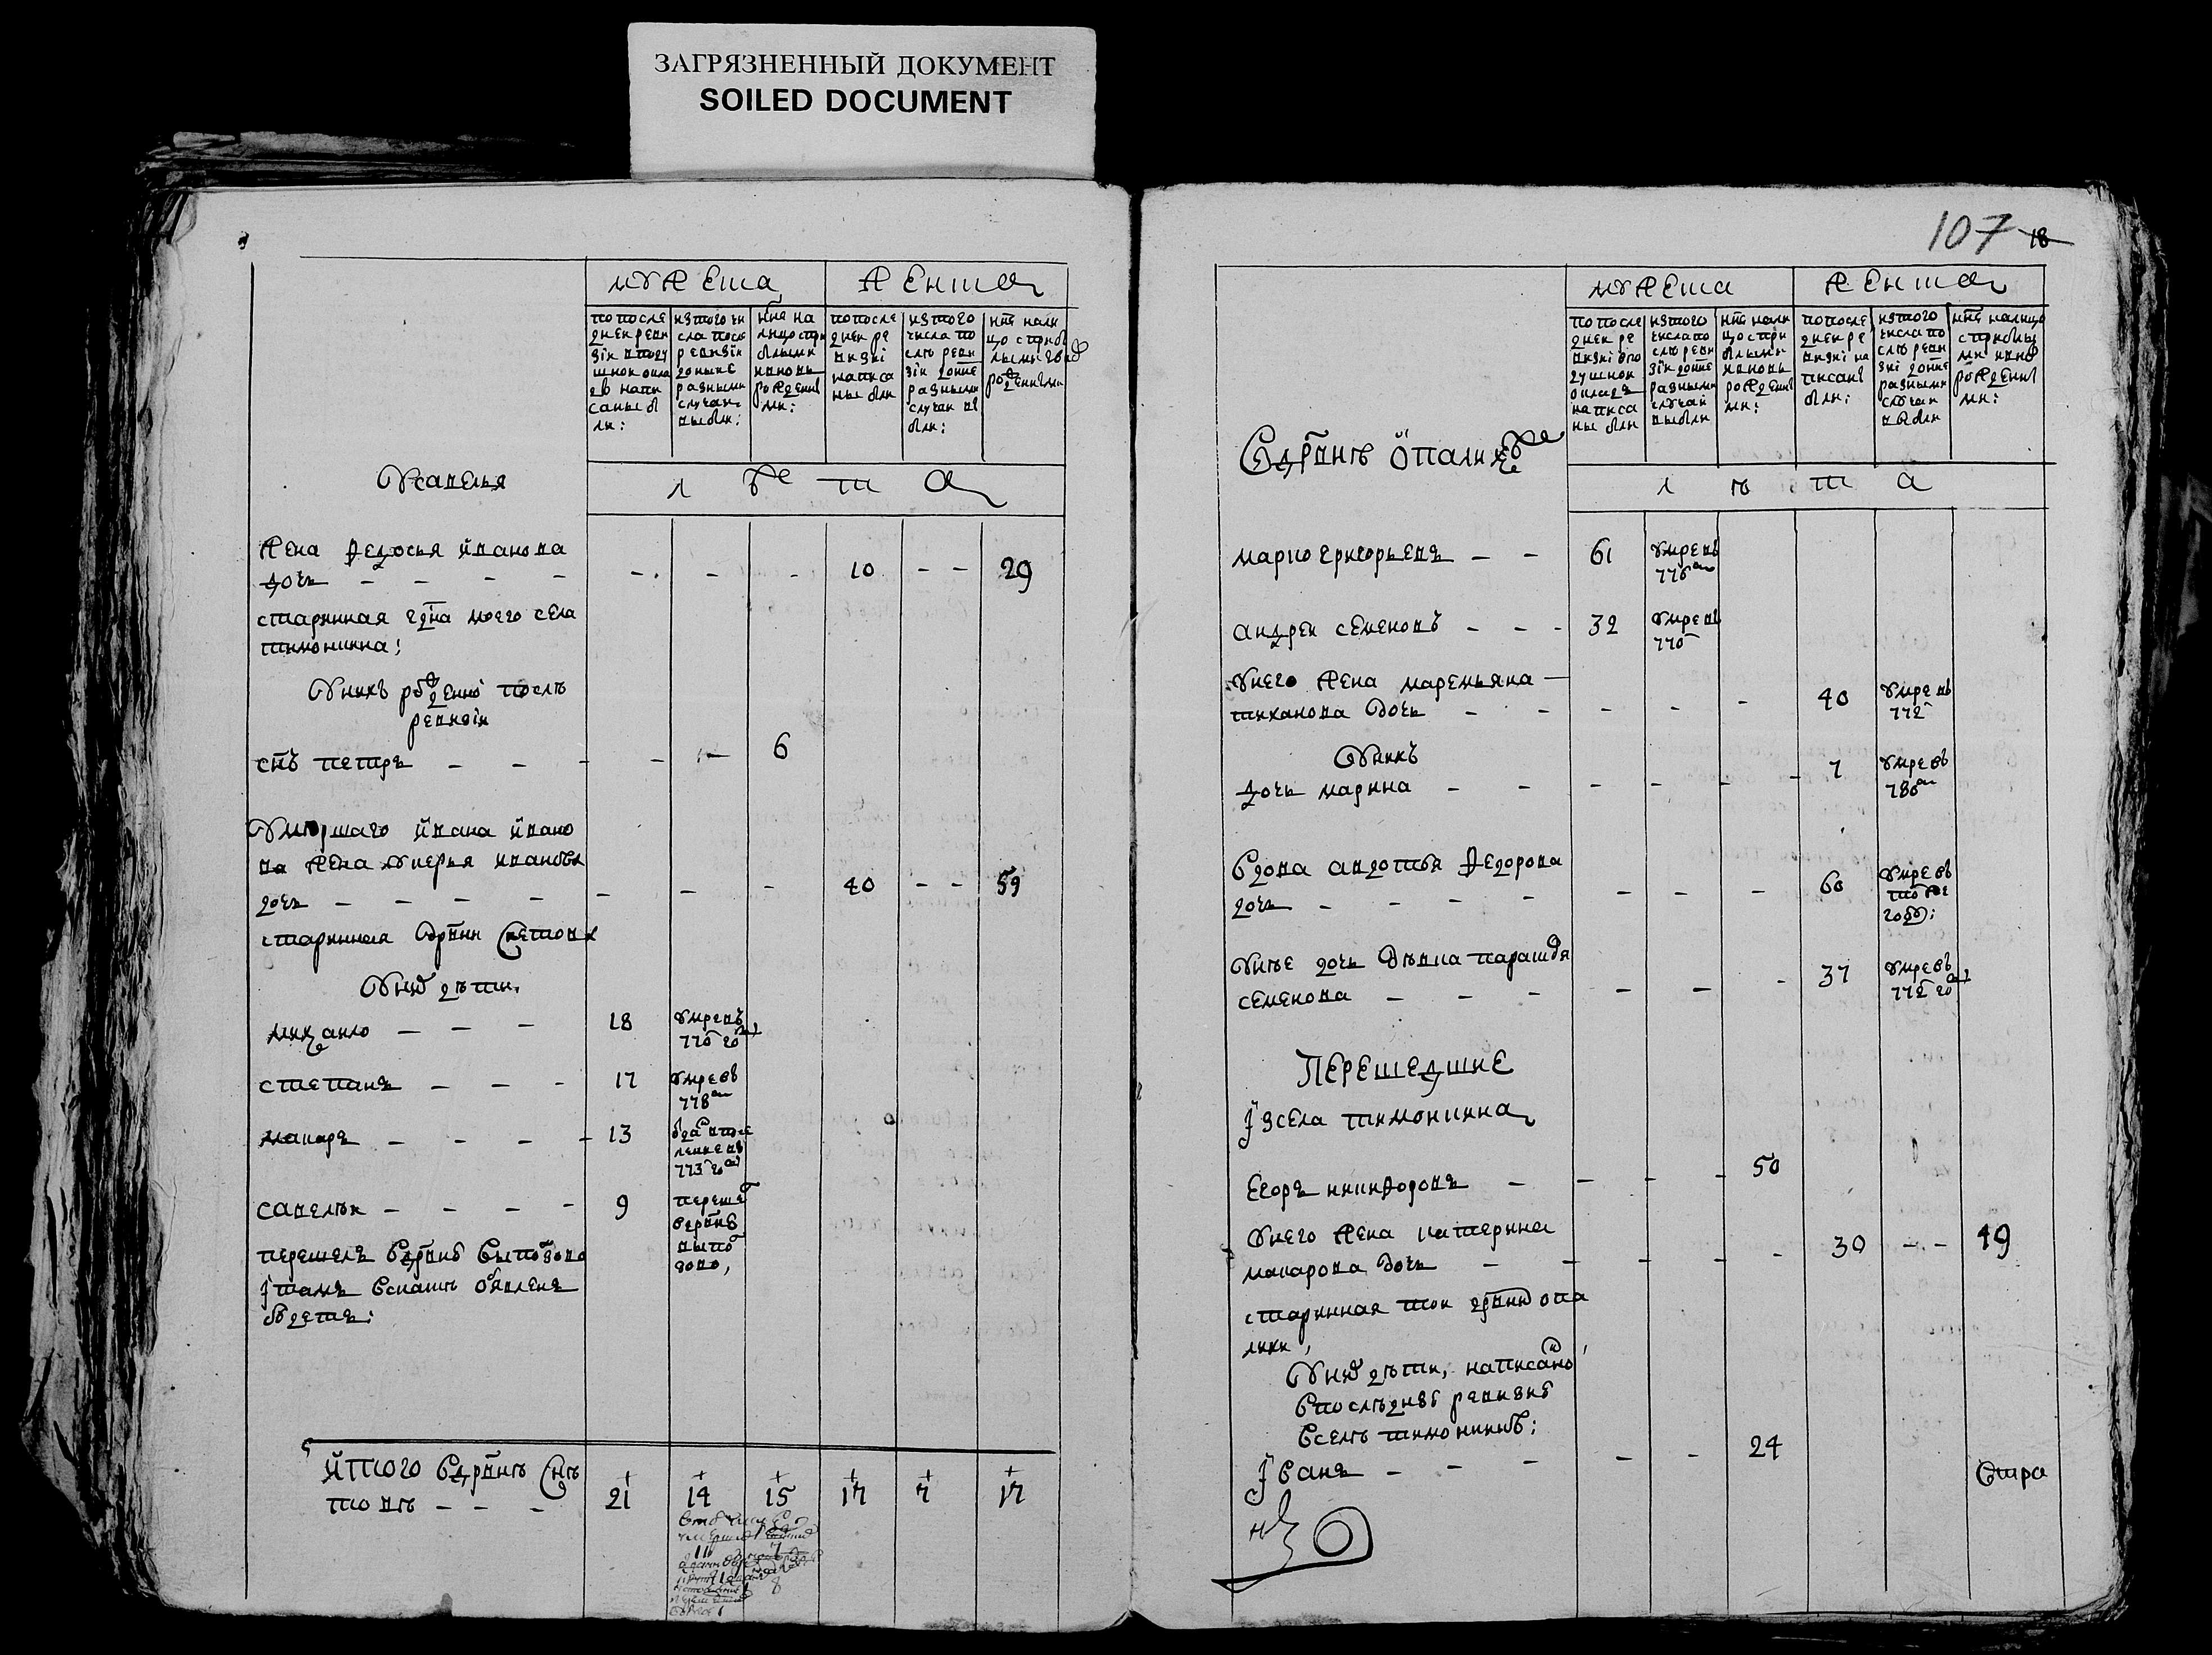 ЗАГРЯЗНЕННЫЙ ДОКУМЕНТ
SOILED DOCUMENT
мужеска женска
по после
дней реви
зіи в поду
шной окла
дъ напи
саны бы
ли:
из того чи
сла после
ревизіи
до ныне
разными
случаи
выбыли:
нне на
лицо с при
былыми
и вновь
рожденны
ми:
по после
дней ре
визіи
написа
ны были
из того
числа по
слѣ реви
зіи до нне
разными
случаи вы
были:
нне нали
цо с прибы
лыми и вно
рожденными
У савелья
л ѣ т а
жена федосья иванова
дочь — — — — 10 — — 29
старинная гдна моего села
тимонина:
У нихъ рожденной послѣ
ревизіи
снъ петръ — — — — — 6
Умершаго ивана ивано
ва жена лукерья иванова
дочь — — — — — — — 40 — — 59
старинная дрвни снетова
У ней дѣти.
михаило — — — 18 умре въ
770 год
степанъ — — — 17 умре въ
778м
макаръ — — — — 13 отдан в посе
леніе въ
773 год
савелѣи — — — — 9 перешел
в дрвню
выпо
зово,
перешелъ в дрвню выпозово
і тамъ в скаскѣ обявленъ
будетъ:
итого в дрвнѣ снѣ
товѣ — — — 21 14 15 17 7 17
107 18
мужеска женска
по после
дней ре
визіи в по
душной
окладъ
написа
ны были
из того
числа по
слѣ реви
зіи до нне
разными
случаи
выбыли
нне нали
цо с при
былыми
и вновь
рожденны
ми:
по после
дней ре
визіи на
писаны
были:
из того
числа по
слѣ реви
зіи до нне
разными
случаи
выбыли
нне налицо
с прибылы
ми и вно
рожденны
ми:
В дрвнѣ опалихѣ
л ѣ т а
марко григорьевъ — — 61 умре въ
776м
андреи семеновъ — — — 32 умре въ
770
у него жена маремьяна —
тиханова дочь — — — — — 40 умре въ
772
У нихъ
дочь марина — — — — — — 7 умре въ
780м
Вдова авдотья федорова
дочь — — — — — — — 60 умре въ
том же
году:
У нее дочь дѣвка парасковя
семенова — — — — — — 37 умре въ
772 год
Перешедшие
Із села тимонина
Егоръ никифоровъ — — — — 50
У него жена катерина
макарова дочь — — — — 30 — — 49
старинная той дрвни опа
лихи,
У них дѣти, написаной
в послѣдней ревизиѣ
в селѣ тимонинѣ:
Іванъ — — — — — 24